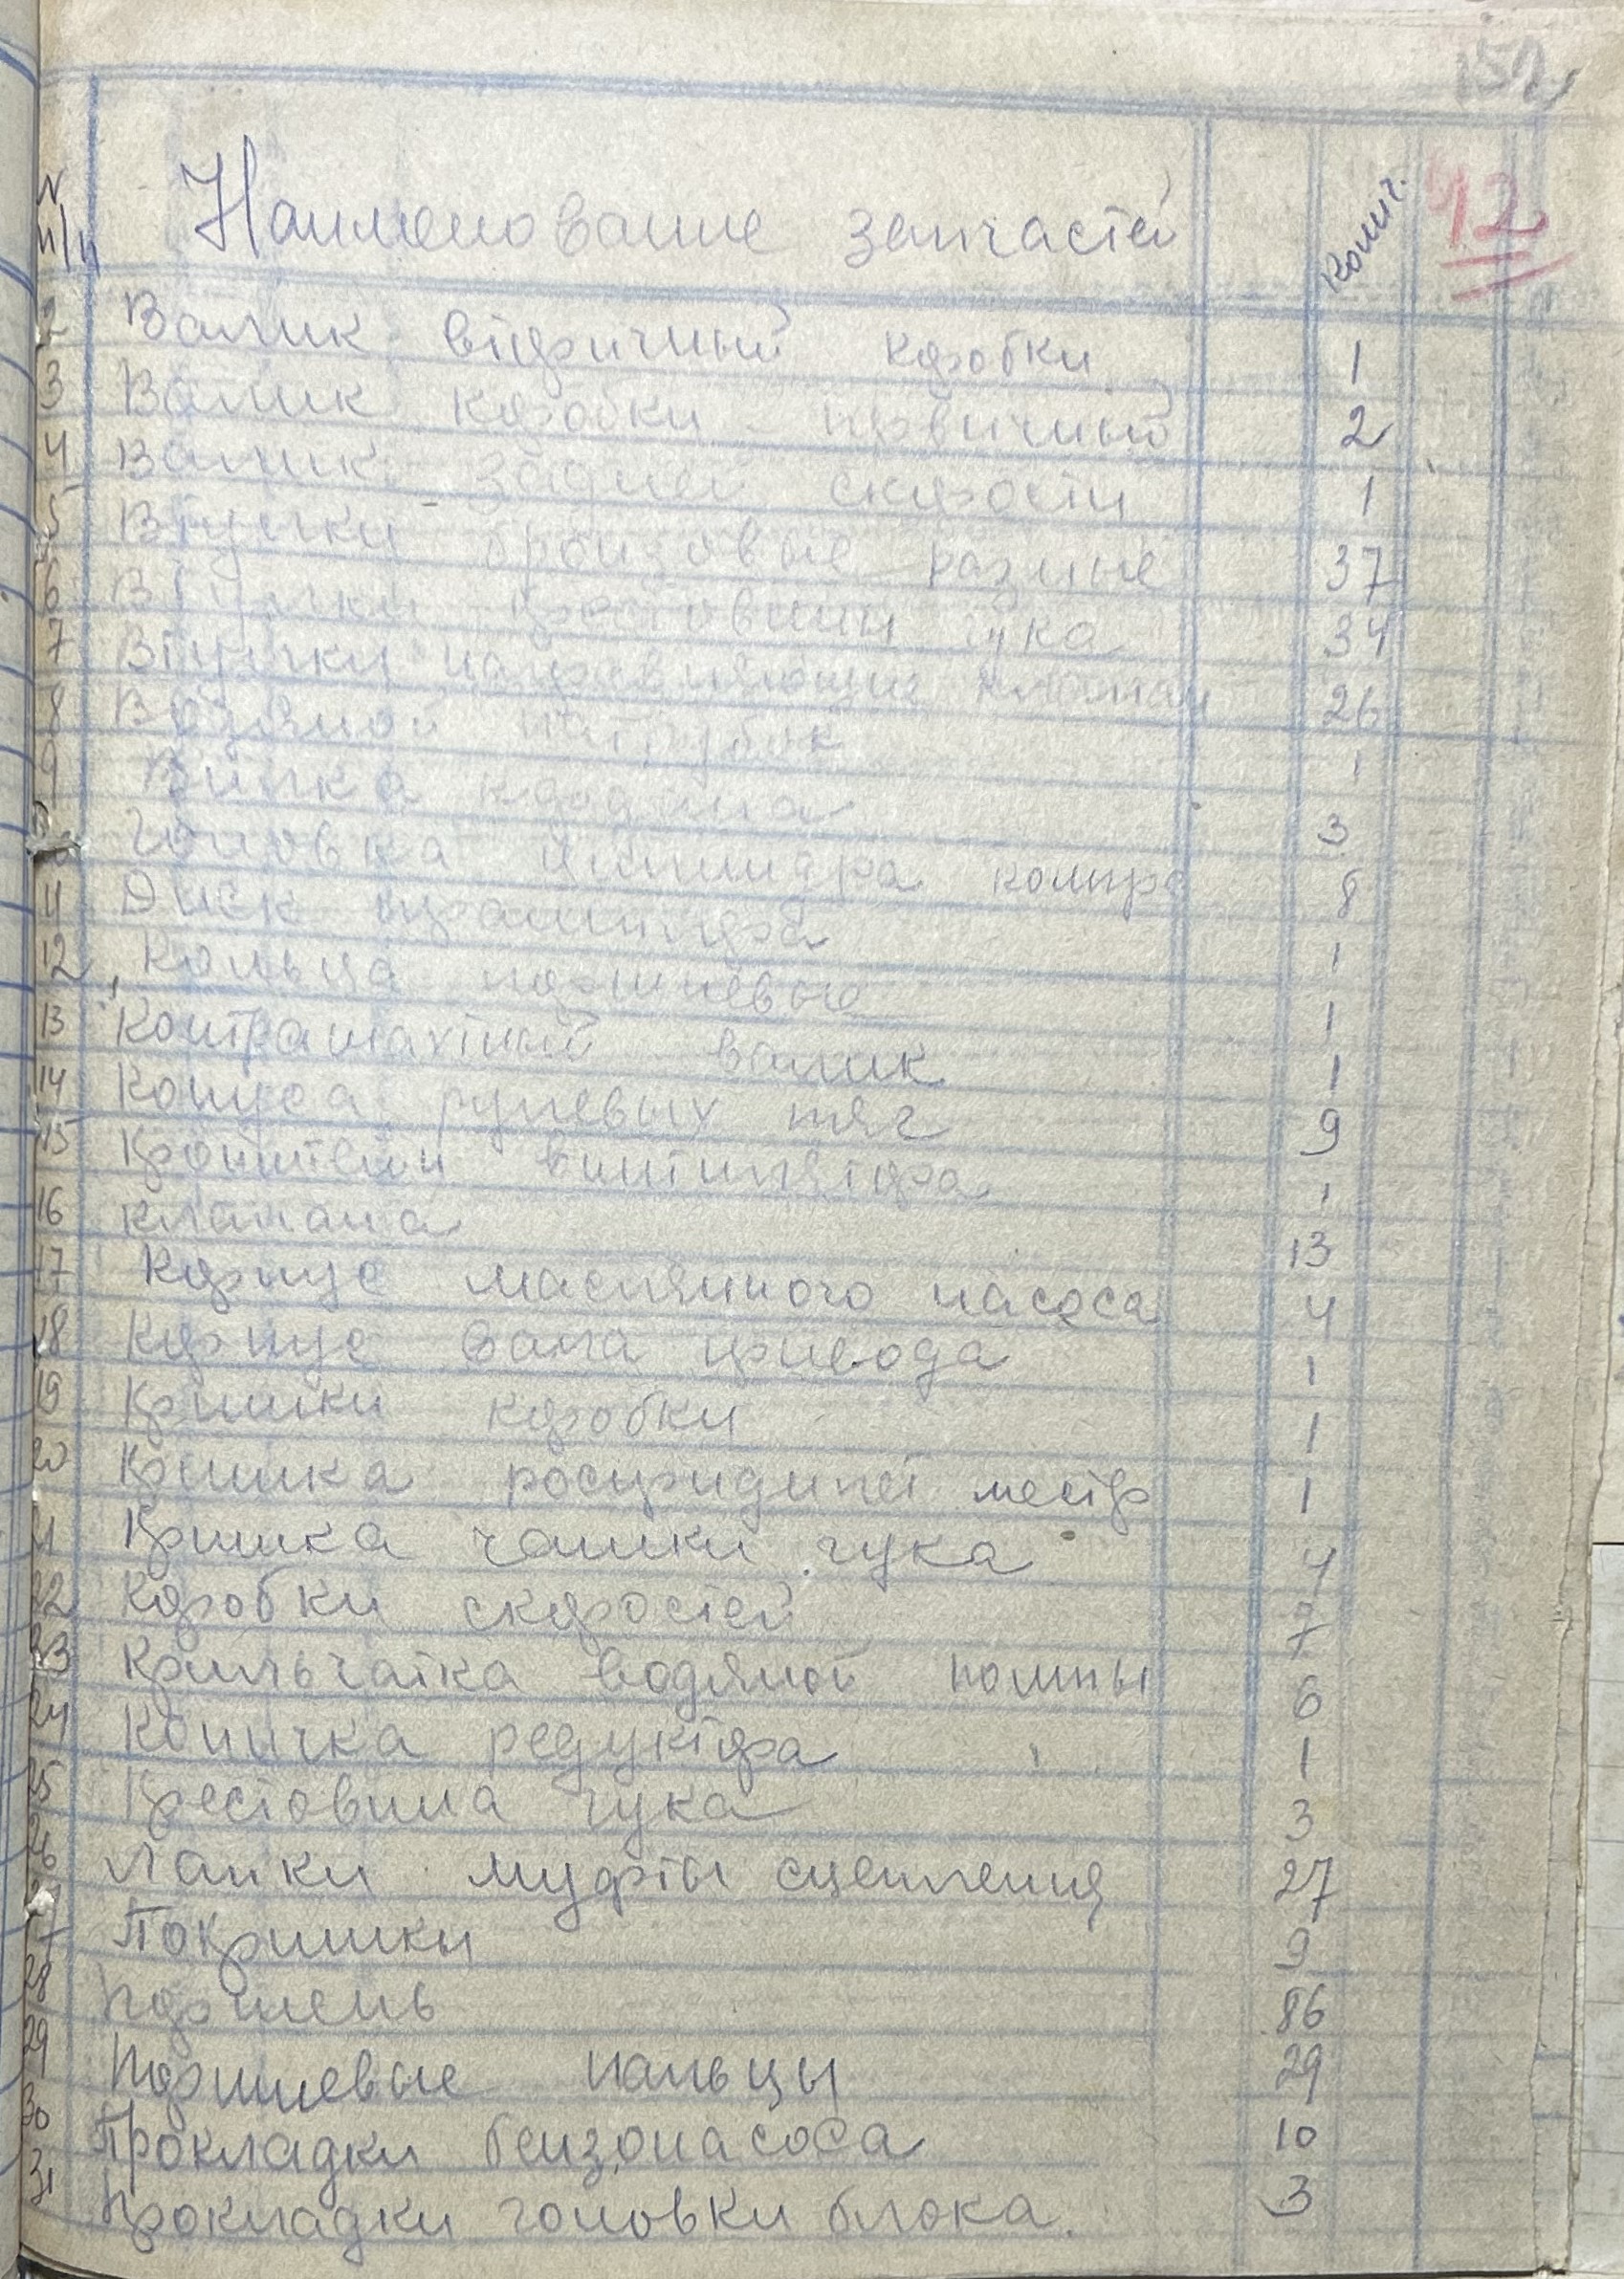 152
42
N п/п Наименование запчастей Колич.
2 Валик вторичный коробки 1
3 Валик коробки первичный 2
4 Валик задней скорости 1
5 Втулки бронзовые разные 37
6 Втулки крестовины гука 34
7 Втулки направляющие клапан 26
8 Водяной патрубок 1
9 Вилка кардана 3
10 Головка цилиндра компре 8
11 Диск 1
12 Кольца поршневые 1
13 валик 1
14 Конуса рулевых тяг 9
15 Кронштейн винтилятора 1
16 Клапана 13
17 Корпус маслянного насоса 4
18 Корпус вала привода 1
19 Кришки коробки 1
20 Кришка местер 1
21 Кришка чашки гука 4
22 Коробки скоростей 7
23 Крильчатка водяной помпы 6
24 редуктора 1
25 Крестовина гука 3
26 Лапки муфты сцепления 27
27 Покришки 9
28 Поршень 86
29 Поршневые пальцы 29
30 Прокладки бензонасоса 10
31 Прокладки головки блока. 3